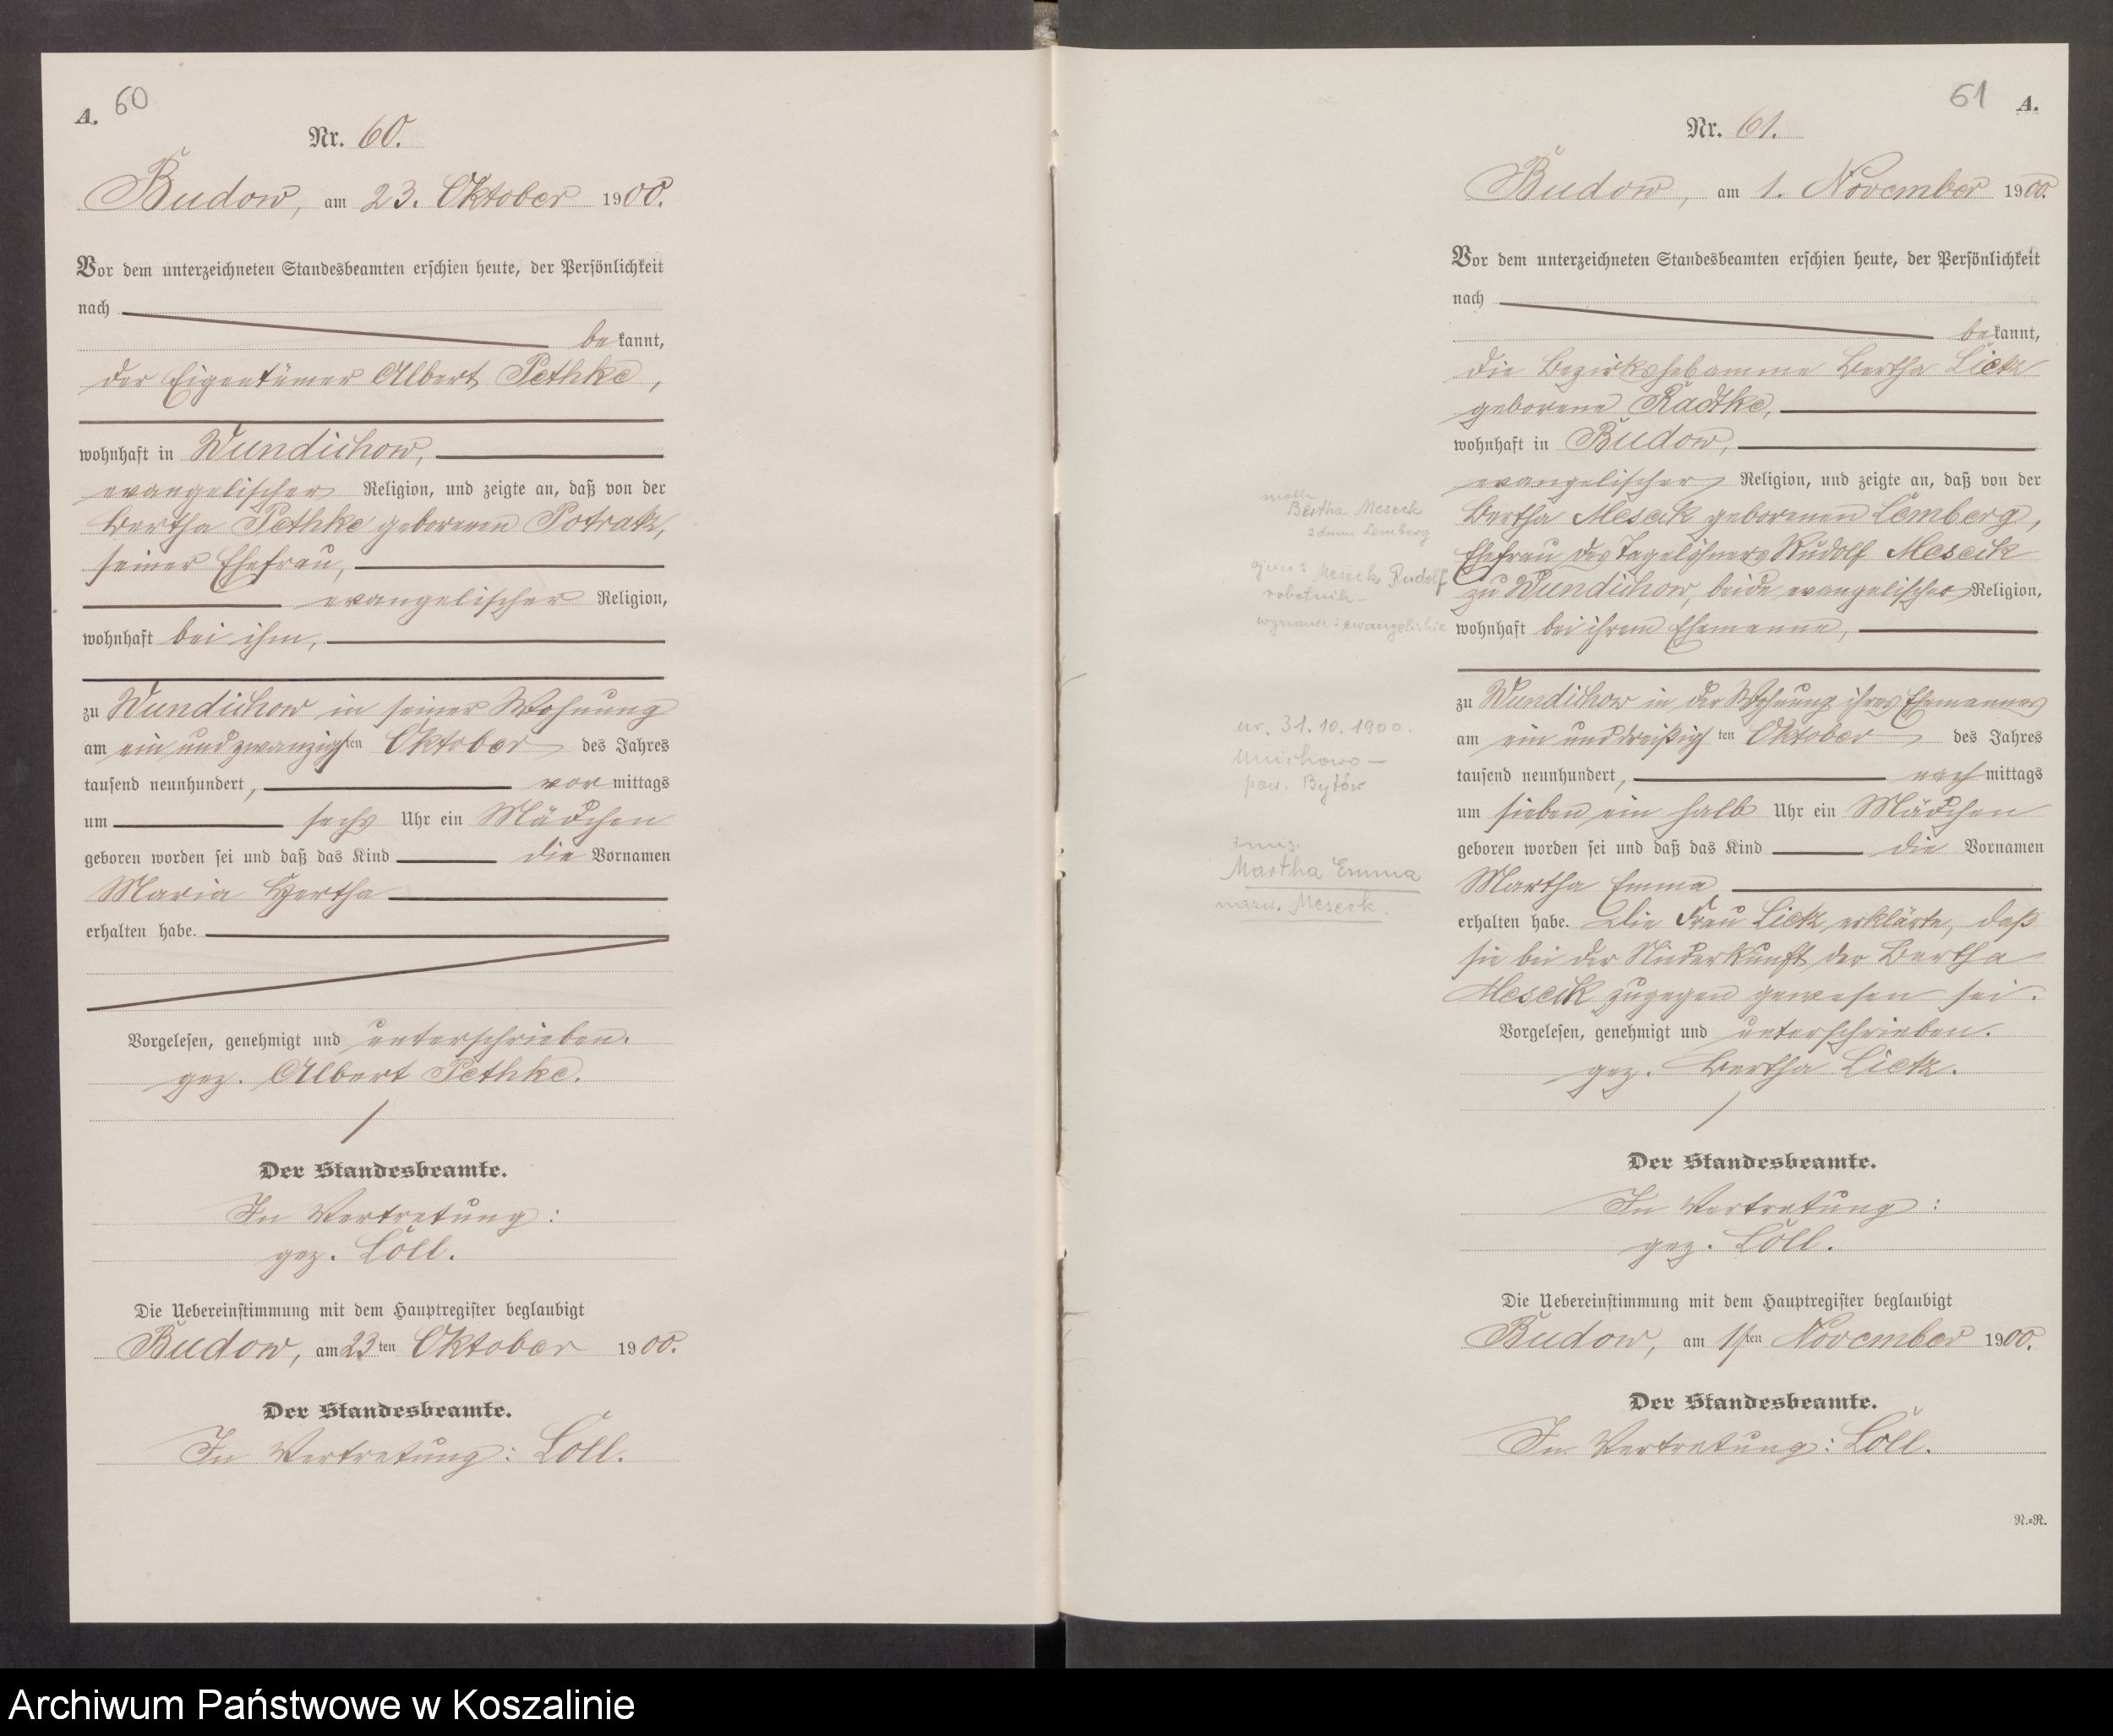 A. 60
Nr. 60.
Budow, am 23. Oktober 1900.
Vor dem unterzeichneten Standesbeamten erschien heute, der Persönlichkeit
nach
bekannt,
der Eigentümer Albert Pethke,
wohnhaft in Wundichow,
evangelischer Religion, und zeigte an, daß von der
Bertha Pethke geborenen Potratz,
seiner Ehefrau,
evangelischer Religion,
wohnhaft bei ihm,
zu Wundichow in seiner Wohnung
am ein und zwanzigsten Oktober des Jahres
tausend neunhundert, vormittags
um sechs Uhr ein Mädchen
geboren worden sei und daß das Kind die Vornamen
Maria Hertha
erhalten habe.
Vorgelesen, genehmigt und unterschrieben.
gez. Albert Pethke.
Der Standesbeamte.
In Vertretung:
gez. Löll.
Die Uebereinstimmung mit dem Hauptregister beglaubigt
Budow, am 23ten Oktober 1900.
Der Standesbeamte.
In Vertretung: Löll.
61 A.
Nr. 61.
Budow, am 1. November 1900.
Vor dem unterzeichneten Standesbeamten erschien heute, der Persönlichkeit
nach
bekannt,
die Bezirkshebamme Bertha Lietz
geborene Radtke,
wohnhaft in Budow,
evangelischer Religion, und zeigte an, daß von der
Bertha Meseck geborenen Lemberg,
Ehefrau des Tagelöhners Rudolf Meseck
zu Wundichow, beide evangelischer Religion,
wohnhaft bei ihrem Ehemanne,
zu Wundichow in der Wohnung ihres Ehemannes
am ein und dreißigsten Oktober des Jahres
tausend neunhundert, nachmittags
um sieben ein halb Uhr ein Mädchen
geboren worden sei und daß das Kind die Vornamen
Martha Emma
erhalten habe. Die Frau Lietz erklärte, daß
sie bei der Niederkunft der Bertha
Meseck zugegen gewesen sei.
Vorgelesen, genehmigt und unterschrieben.
gez. Bertha Lietz.
Der Standesbeamte.
In Vertretung:
gez. Löll.
Die Uebereinstimmung mit dem Hauptregister beglaubigt
Budow, am 1sten November 1900.
Der Standesbeamte.
In Vertretung: Löll.
N.=R.
Bertha Meseck
z domu Lemberg
Meseck Rudolf
robotnik
ewangelickie
ur. 31.10.1900.
Unichowo
pow. Bytów
imię.
Martha Emma
nazw. Meseck.
Archiwum Państwowe w Koszalinie